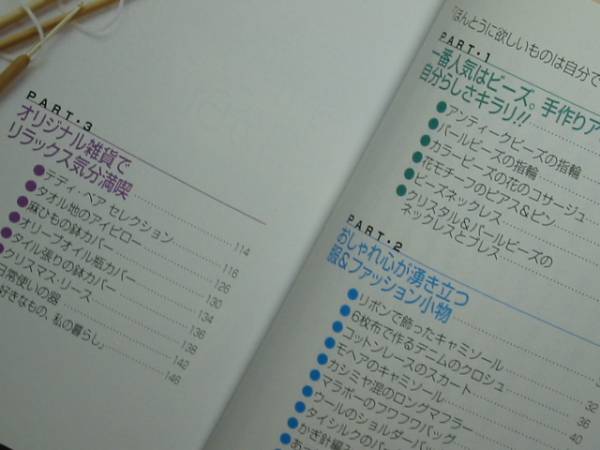 「ほんとうに欲しいものは自分で
PART・1
一番人気はビーズ。手作りア
自分らしさキラリ!!
●アンティークビーズの指輪
●パールビーズの指輪
●カラービーズの花のコサージュ
●花モチーフのピアス&ピン
●ビーズネックレス
●クリスタル&パールビーズの
ネックレスとブレス
PART・2
おしゃれ心が湧き立つ
服&ファッション小物
●リボンで飾ったキャミソール
●6枚布で作るデニムのクロシュ 32
●コットンレースのスカート 36
●モヘアのキャミソール 40
●カシミヤ混のロングマフラー
●マラボーのフワフワバッグ
●ウールのショルダーバッ
●タイシルクのバ
●かぎ針編み
PART・3
オリジナル雑貨で
リラックス気分満喫
●テディ・ベア セレクション 114
●タオル地のアイピロー 116
●麻ひもの鉢カバー 126
●オリーブオイル瓶カバー 130
●タイル張りの鉢カバー 134
●クリスマス・リース 136
日常使いの器 138
好きなもの、私の暮らし」 142
148